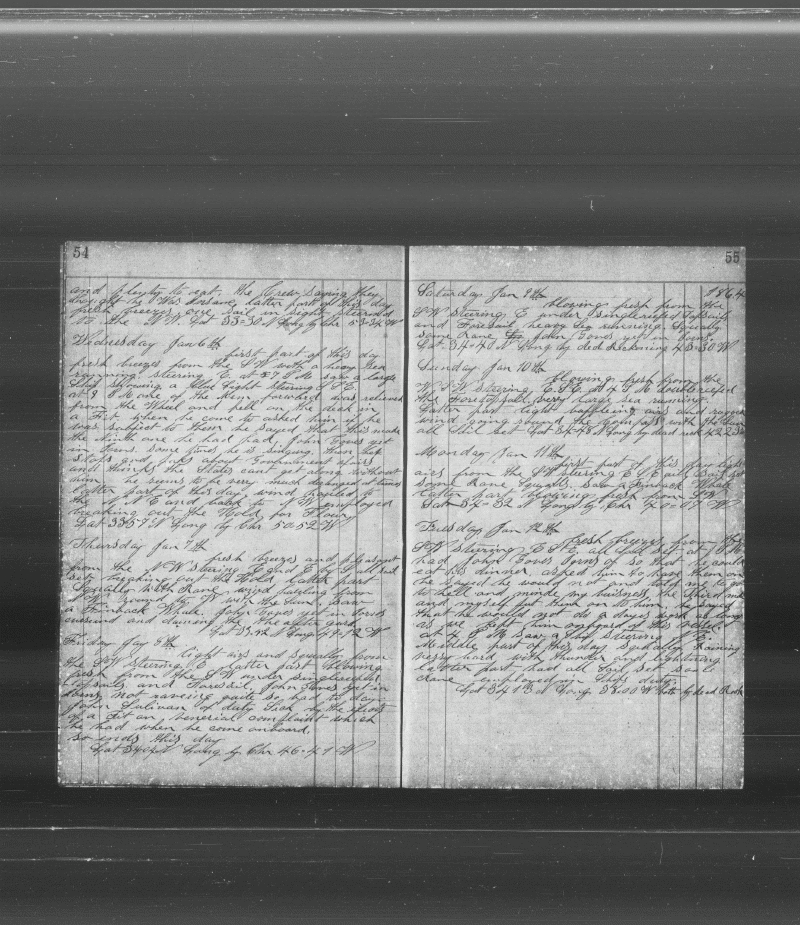 54
and plenty to eat. the Crew saying they
thought he was insane latter part of this day
fresh breezes one Sail in sight steered
to the NW. Lat 33-30 N Long by Chr 53-34 W
Wednesday Jan 6th
first part of this day
fresh breezes from the SW with a heavy sea
running steering E at 7 P M saw a large
Ship showing a blue light steering
at 8 P M one of the Men forward was relieved
from the Wheel and fell on the deck in
a Fit when he come to asked him if he
was subject to them he sayed that this make
the Ninth one he had had, John Jones yet
in Irons. some times he is singing. then he
and thinks the States can get along without
him he seems to be very much deranged at times
latter part of this day wind hauled to
the N E and back to N W employed
breaking out the Hold for Flour
Lat 33 57 N Long by Chr 50 52 W
Thursday Jan 7th
fresh breezes and pleasant
from the N W Steering E and E by S all sail
set breaking out the Hold latter part
Squally with rane wind hauling from
S W around to with the sun, saw
a Finback Whale. John Jones yet in Irons
cursing and damning the the after gard
Lat 33 42 N Long 49-12 W
Friday Jan 8th
light airs and squally from
the SW Steering E latter part blowing
fresh from the SW under singlereefed
topsails and Foresail, John Jones yet in
Irons not raveing quite so bad
John Sulivan of duty Sick by the
of a Fit an venerial complaint which
he had when he come onboard.
so ends this day
Lat 34 04 N Long by Chr 46-47 W
55
Saturday Jan 9th 1864
blowing fresh from the
SW steering E under singlereefed topsails
and Foresail heavy sea running Squally
some rane John Jones yet in Irons
Lat 34-40 N Long by ded Reckoning 43-30 W
Sunday Jan 10th
blowing fresh from the
W S W Steering E.S.E. At 4 P M doublereefed
the Foretopsail very large sea running
latter part light baffleing airs and rugged
wind going round the Compass with the sun
all Sail Set Lat 34-48 N Long by dead reck 42 23 W
Monday Jan 11th
first part of this day light
airs from the SW steering E S E all Sail set
some rane Squals. Saw a Finback Whale
latter part blowing fresh from SW
Lat 34-32 N Long by Chr 40-07 W
Tuesday Jan 12th
fresh breezes from the
SW steering E S E, all Sail set at 1 P M
had John Jones Irons of so that he could
eat his dinner asked him to have them on
he sayed he would not and told me to go
to hell and minde my buisness, the third mate
and myself put them on to him he sayed
that he would not do a days work as long
as we kept him onboard of this vessel
at 4 P M saw a Ship steering N E.
Middle part of this day squally raining
very hard with thunder and lightning
latter part had all Sail set some
rane employed in Ships duty
Lat 34 13 N Long 38.00 W both by dead Reck